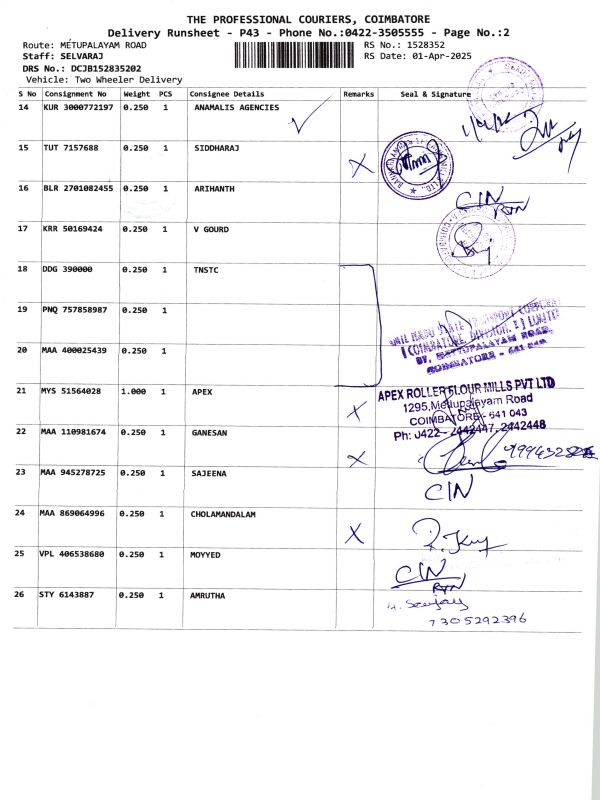 THE PROFESSIONAL COURIERS, COIMBATORE
Delivery Runsheet - P43 - Phone No.:0422-3505555 - Page No.:2
Route: METUPALAYAM ROAD RS No.: 1528352
Staff: SELVARAJ RS Date: 01-Apr-2025
DRS No.: DCJB152835202
Vehicle: Two Wheeler Delivery
S No Consignment No Weight PCS Consignee Details Remarks Seal & Signature
14 KUR 3000772197 0.250 1 ANAMALIS AGENCIES
15 TUT 7157688 0.250 1 SIDDHARAJ X
16 BLR 2701082455 0.250 1 ARIHANTH C/N
RTN
17 KRR 50169424 0.250 1 V GOURD
18 DDG 390000 0.250 1 TNSTC
19 PNQ 757858987 0.250 1
20 MAA 400025439 0.250 1
COIMBATORE - 641 043
21 MYS 51564028 1.000 1 APEX X
APEX ROLLER FLOUR MILLS PVT LTD
1295, Mettupalayam Road
COIMBATORE - 641 043
Ph: 0422 - 2442447, 2442448
22 MAA 110981674 0.250 1 GANESAN X
23 MAA 945278725 0.250 1 SAJEENA C/N
24 MAA 869064996 0.250 1 CHOLAMANDALAM X
25 VPL 406538680 0.250 1 MOYYED C/N
RTN
26 STY 6143887 0.250 1 AMRUTHA
7305292396